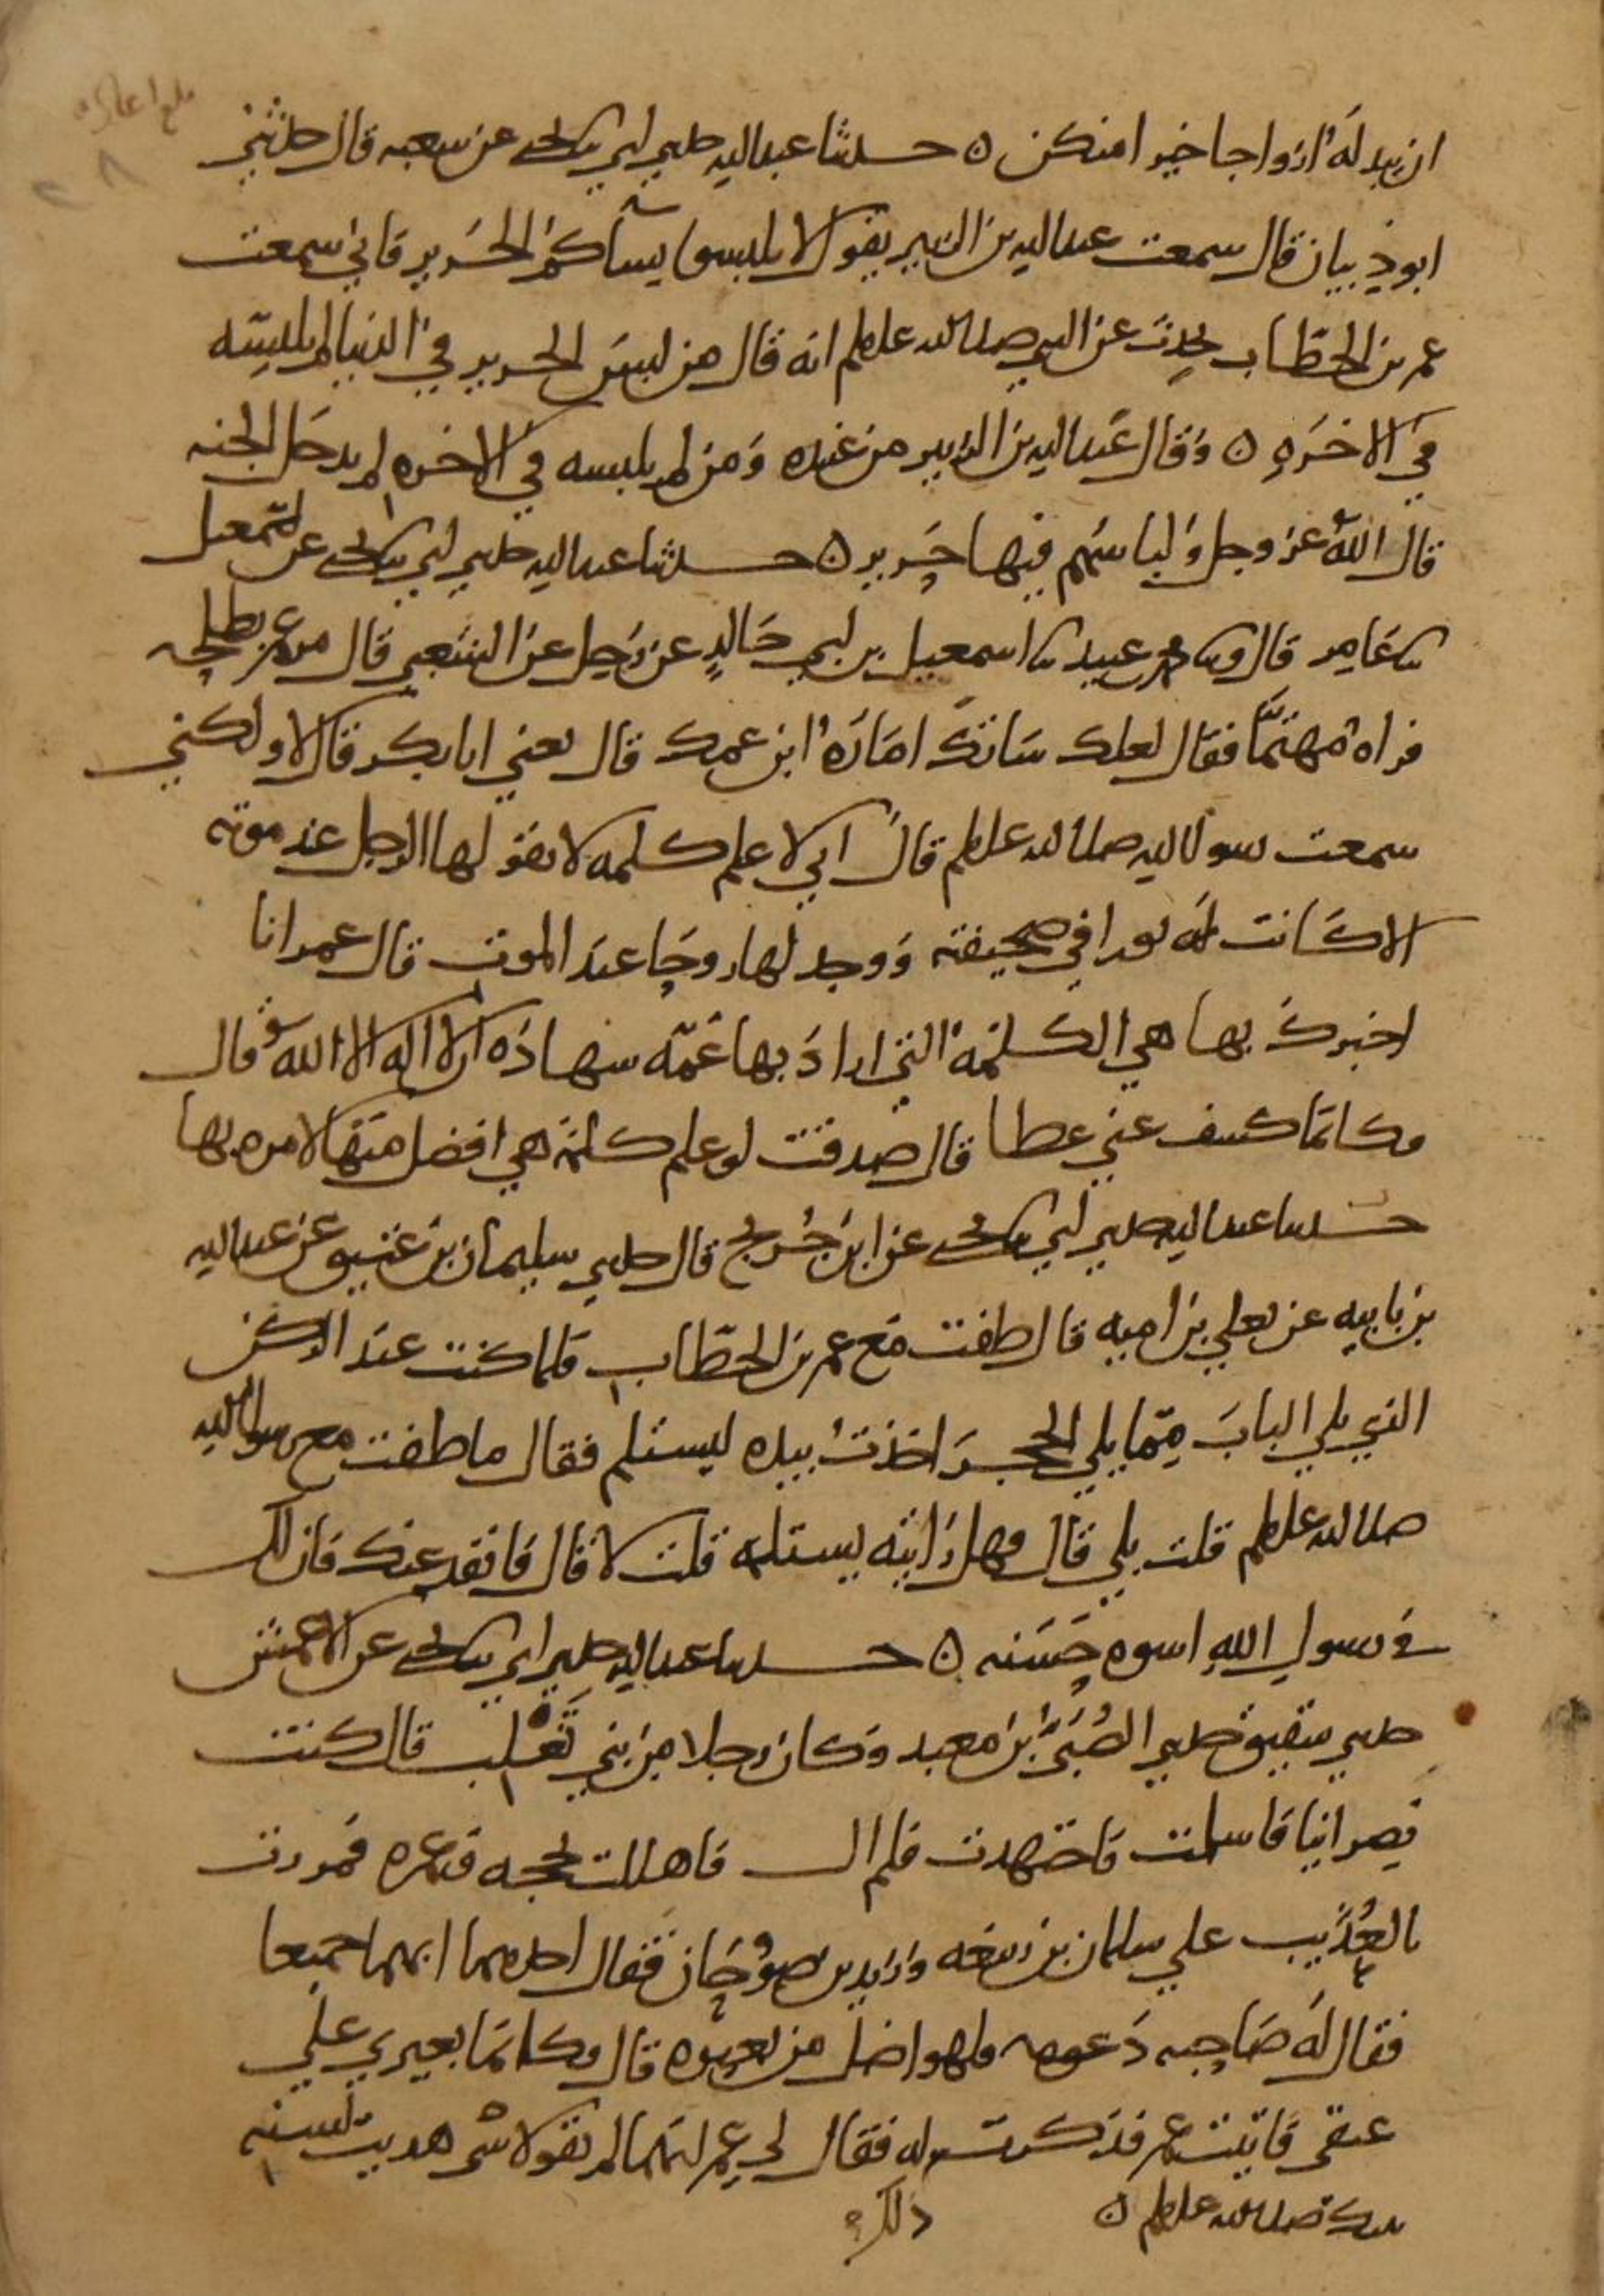 ان يبدله ازواجا خيرا منكن ه حدثنا عبد الله حدثني ابي ثنا يحيى عن شعبه قال حدثني
ابو ذبيان قال سمعت عبد الله بن الزبير يقول لا تلبسوا نساكم الحرير فاني سمعت
عمر بن الخطاب يحدث عن النبي صلى الله عليه وسلم انه قال من لبس الحرير في الدنيا لم يلبسه
في الاخره ه وقال عبد الله بن الزبير من عنده ومن لم يلبسه في الاخره لم يدخل الجنه
قال الله عز وجل ولباسهم فيها حرير ه حدثنا عبد الله حدثني ابي ثنا يحيى عن اسمعيل
ثنا عامر قال وثنا محمد بن عبيد ثنا اسمعيل بن ابي خالد عن رجل عن الشعبي قال مر عمر بطلحه
فراه مهتما فقال لعلك ساتك اماره ابن عمك قال يعني ابا بكر فقال لا ولكني
سمعت رسول الله صلى الله عليه وسلم قال اني لاعلم كلمه لا يقولها الرجل عند موته
الا كانت له نورا في صحيفته ووجد لها روحا عند الموت قال عمر انا
اخبرك بها هي الكلمه التي اراد بها عمه شهاده ان لا اله الا الله قال
فكانما كشف عني غطا قال صدقت لو علم كلمه هي افضل منها لامره بها
حدثنا عبد الله حدثني ابي ثنا يحيى عن ابن جريج قال حدثني سليمان بن عتيق عن عبد الله
بن بابيه عن يعلي بن اميه قال طفت مع عمر بن الخطاب فلما كنت عند الركن
الذي يلي الباب مما يلي الحجر اخذت بيده ليستلم فقال ما طفت مع رسول الله
صلى الله عليه وسلم قلت بلي قال فهل رايته يستلمه قلت لا قال فانفد عنك فان لك
في رسول الله اسوه حسنه ه حدثنا عبد الله حدثني ابي ثنا يحيى عن الاعمش
حدثني شقيق حدثني الصبي بن معبد وكان رجلا من بني تغلب قال كنت
نصرانيا فاسلمت فاجتهدت فلم ال فاهللت بحجه وعمره فمررت
بالعذيب علي سلمان بن ربيعه وزيد بن صوحان فقال احدهما ابهما جميعا
فقال له صاحبه دعه فلهو اضل من بعيره قال فكانما بعيري علي
عنقي فاتيت عمر فذكرت له فقال لي عمر انهما لم يقولا شي هديت لسنه
نبيك صلى الله عليه وسلم ه ذلك